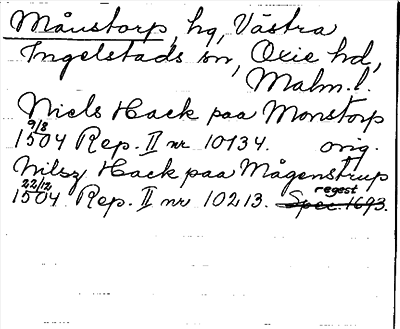 Månstorp, hg, Västra
Ingelstads sn, Oxie hd,
Malm. l.
Niels Hack paa Monstorp
9/8 1504 Rep. II nr 10134. orig.
Nilsz Hack paa Mågenstrup
22/12 1504 Rep. II nr 10213. regest Spec. 1693.